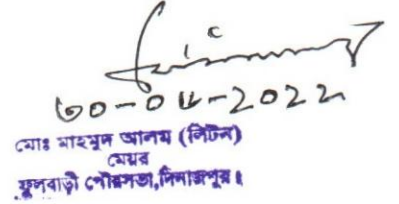 ৩০-০৮-2022
মোঃ মাহমুদ আলম (লিটন)
মেয়র
ফুলবাড়ী পৌরসভা,দিনাজপুর।